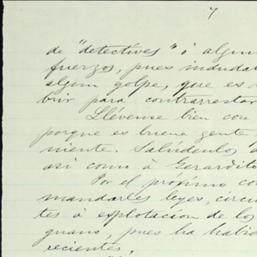 7
de "detectives" ó algun
fuerzos, pues mandar
algun golpe, que es
vivir para contrarrestar
Llévense bien con
porque es buena gente
miente. Salúdenlos
asi como á Gerardito
Por el próximo co
mandarles leyes, circu
tes á explotacion de los
guano, pues ha habi
recientes,